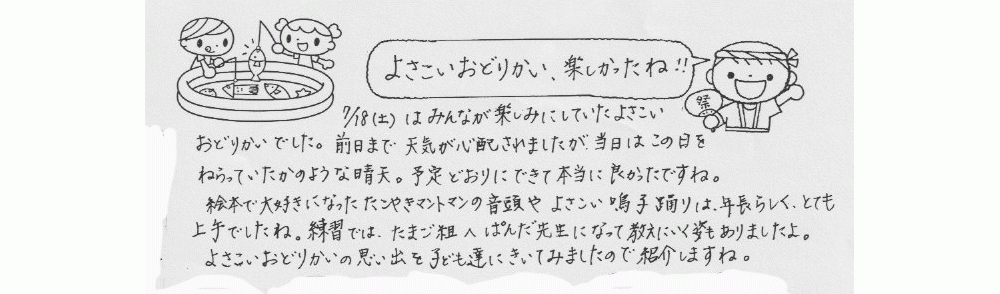 よさこいおどりかい、楽しかったね!!
祭
7/18(土)はみんなが楽しみにしていたよさこい
おどりかいでした。前日まで天気が心配されましたが、当日はこの日を
ねらっていたかのような晴天。予定どおりにできて本当に良かったですね。
絵本で大好きになったたこやきマントマンの音頭やよさこい鳴子踊りは、年長らしく、とても
上手でしたね。練習では、たまご組へぱんだ先生になって教えにいく姿もありましたよ。
よさこいおどりかいの思い出を子ども達にきいてみましたので紹介しますね。